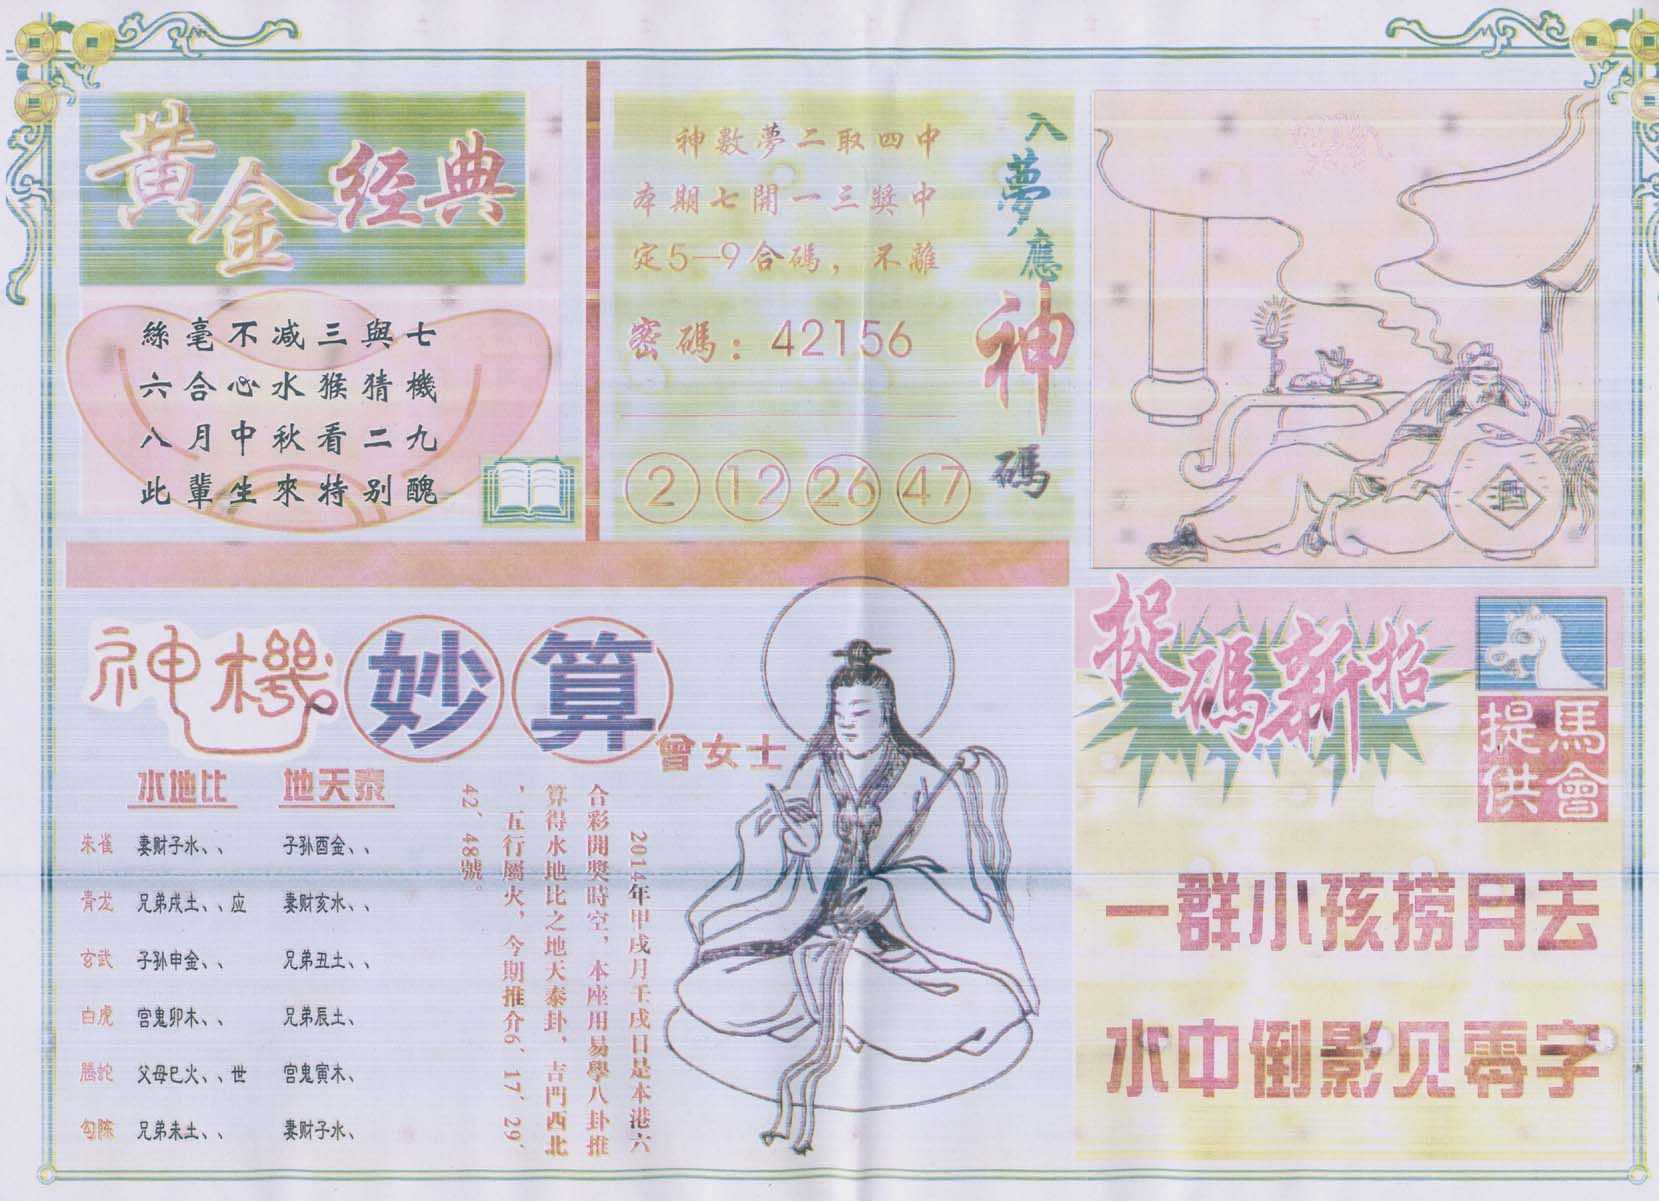 黄金经典
絲毫不减三與七
六合心水猴猜機
八月中秋看二九
此輩生來特别醜
神數夢二取四中
本期七開一三獎中
定5—9合碼，不離
密碼：42156
2 12 26 47
入夢應神碼
酒
神機妙算
曾女士
水地比 地天泰
朱雀 妻财子水、、 子孙酉金、、
青龙 兄弟戌土、、应 妻财亥水、、
玄武 子孙申金、、 兄弟丑土、、
白虎 官鬼卯木、、 兄弟辰土、
螣蛇 父母巳火、、世 官鬼寅木、
勾陈 兄弟未土、、 妻财子水、
2014年甲戌月壬戌日是本港六
合彩開獎時空，本座用易學八卦推
算得水地比之地天泰卦，吉門西北
，五行屬火，今期推介6、17、29、
42、48號。
捉碼新招
馬會提供
一群小孩捞月去
水中倒影见零字